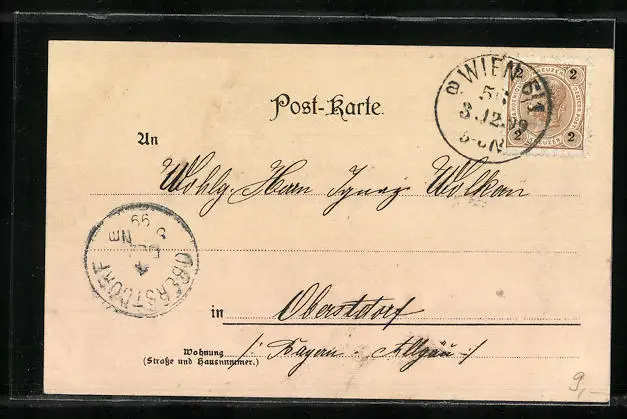 Post-Karte.
WIEN 6/1
3.12.99
2 KREUZER 2
2 KREUZER 2
An
Wohlg. Herrn Ignaz Wolkan
OBERSTDORF
4 DEZ
NM
99
in Oberstdorf
Wohnung
(Straße und Hausnummer.)
/: Bayern - Allgäu :/
9,-